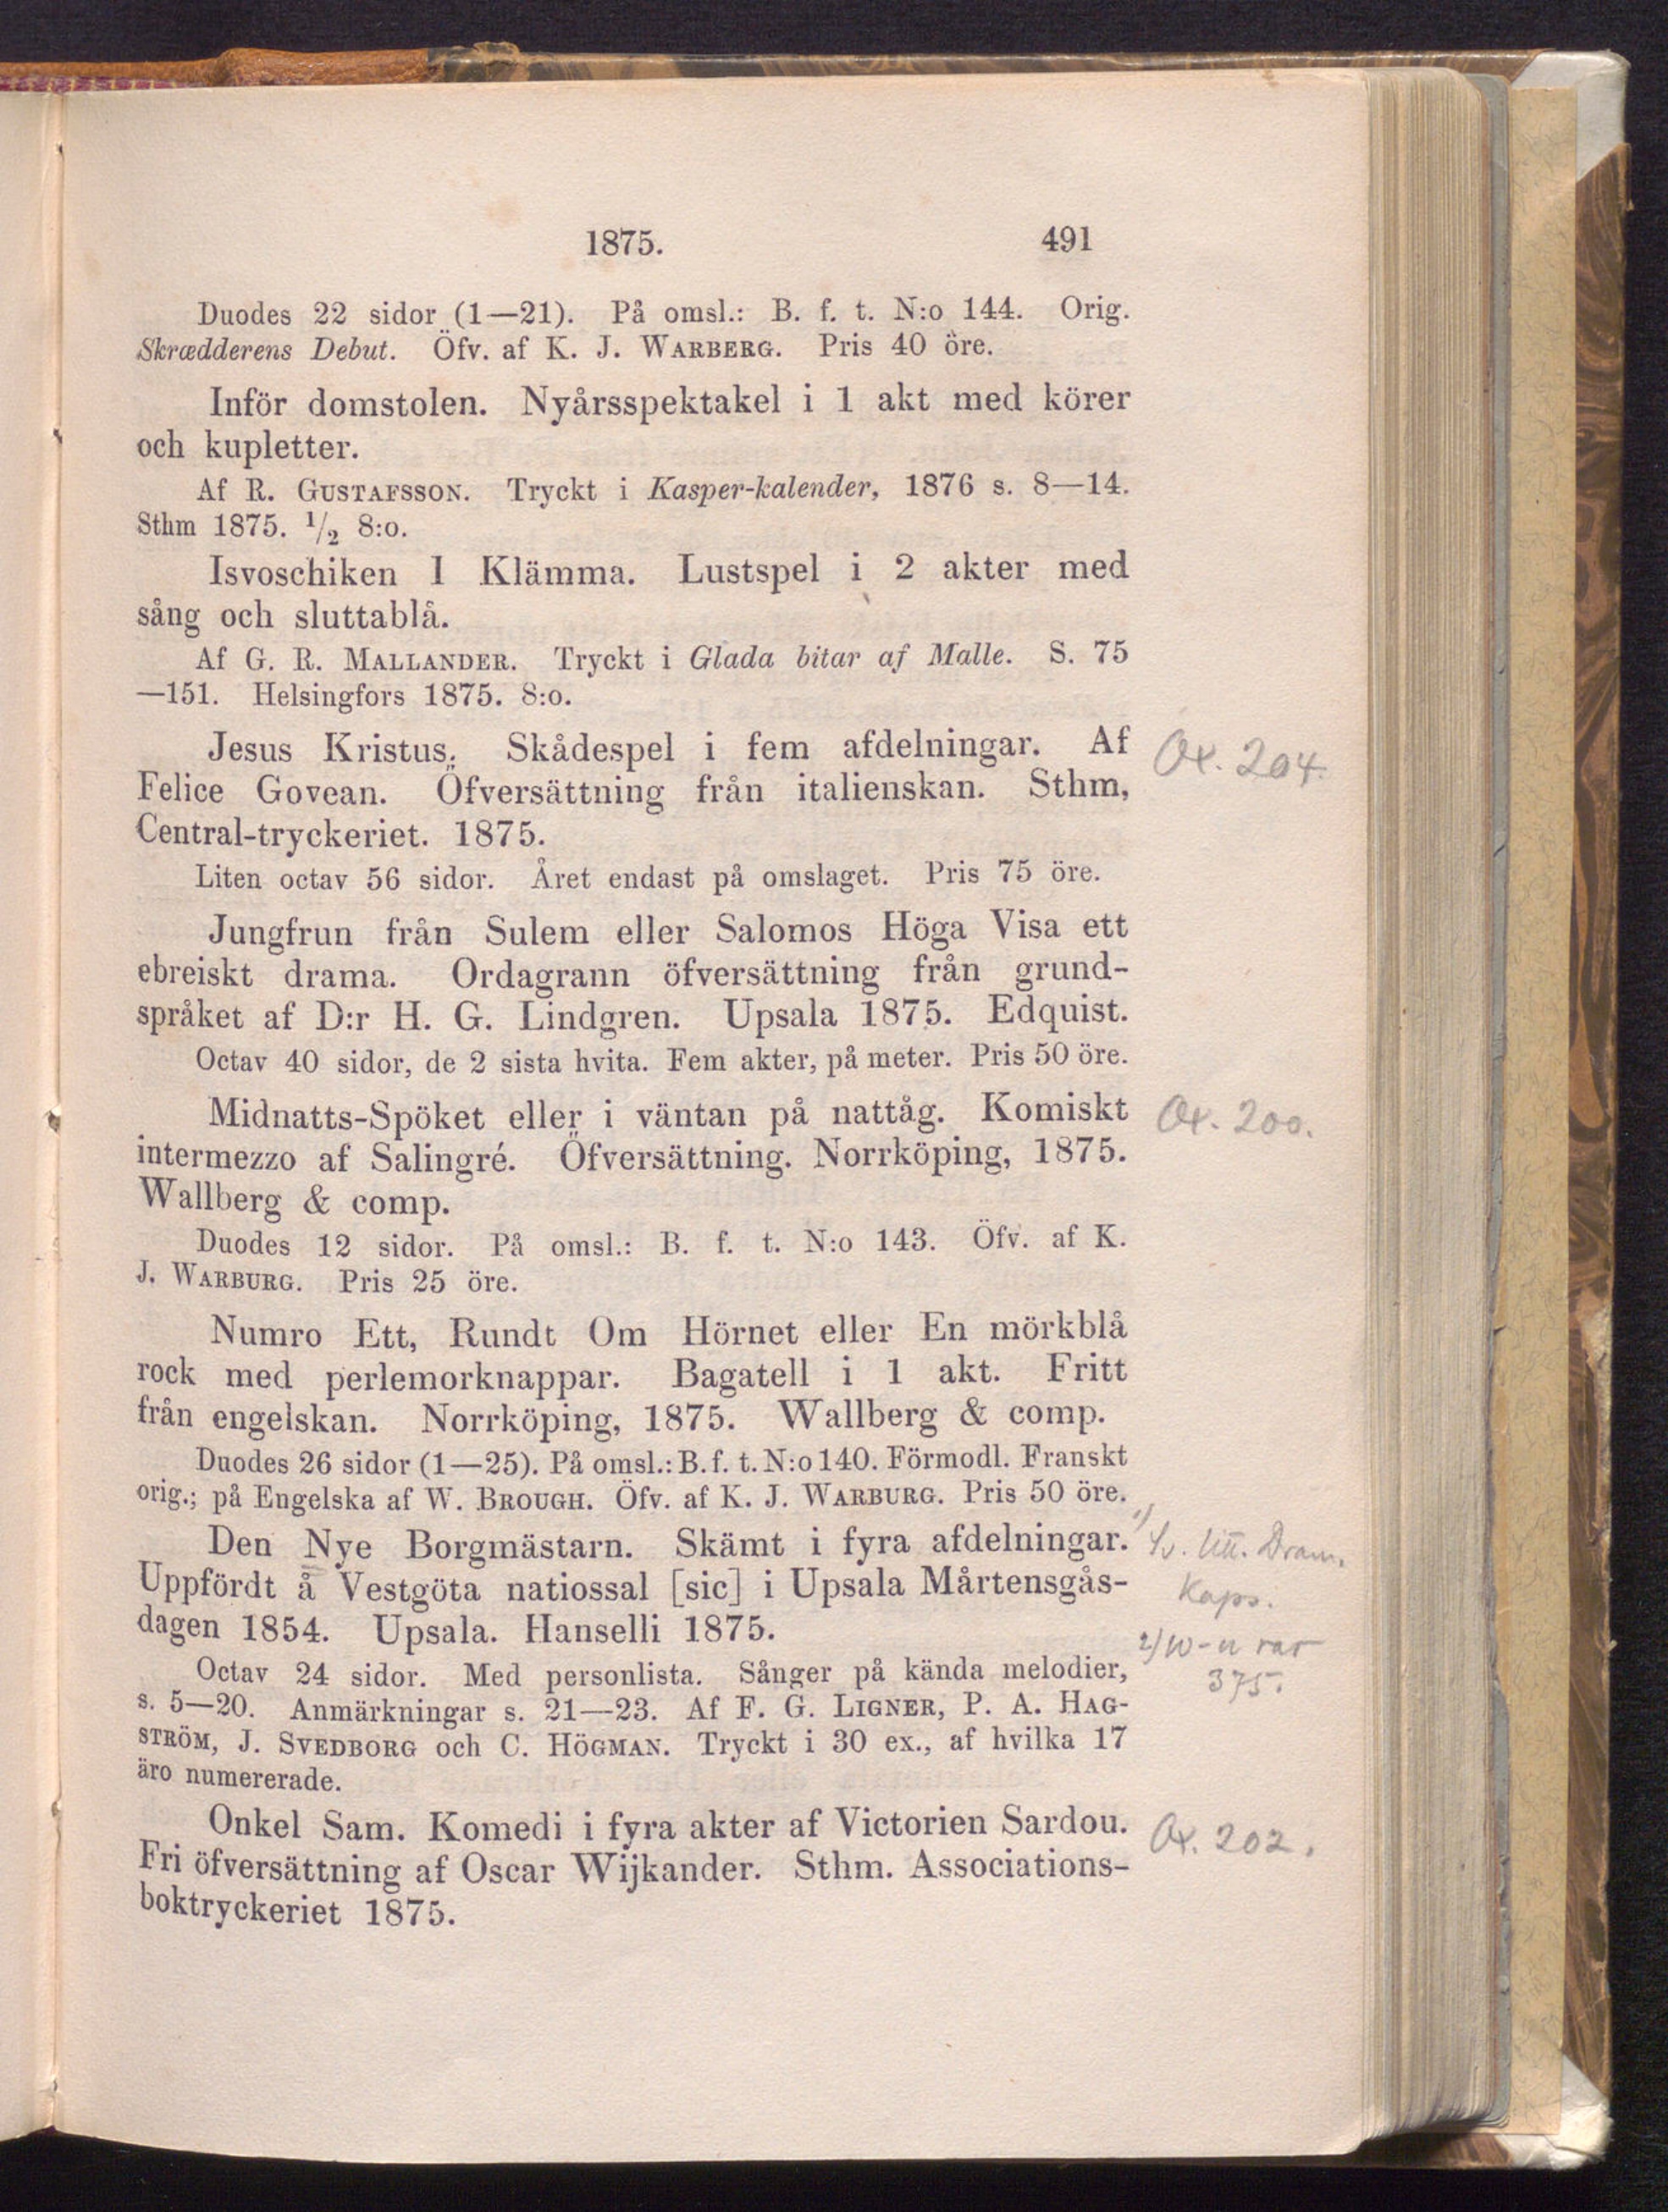 1875.
491
Duodes 22 sidor (1—21). På omsl.: B. f. t. N:o 144. Orig.
Skrædderens Debut. Öfv. af K. J. WARBERG. Pris 40 öre.
Inför domstolen. Nyårsspektakel i 1 akt med körer
och kupletter.
Af R. GUSTAFSSON. Tryckt i Kasper-kalender, 1876 s. 8—14.
Sthm 1875. 1/2 8:o.
Isvoschiken I Klämma. Lustspel i 2 akter med
sång och sluttablå.
Af G. R. MALLANDER. Tryckt i Glada bitar af Malle. S. 75
—151. Helsingfors 1875. 8:o.
Jesus Kristus. Skådespel i fem afdelningar. Af
Felice Govean. Öfversättning från italienskan. Sthm,
Central-tryckeriet. 1875.
Ox. 204.
Liten octav 56 sidor. Året endast på omslaget. Pris 75 öre.
Jungfrun från Sulem eller Salomos Höga Visa ett
ebreiskt drama. Ordagrann öfversättning från grund-
språket af D:r H. G. Lindgren. Upsala 1875. Edquist.
Octav 40 sidor, de 2 sista hvita. Fem akter, på meter. Pris 50 öre.
Midnatts-Spöket eller i väntan på nattåg. Komiskt
intermezzo af Salingré. Öfversättning. Norrköping, 1875.
Wallberg & comp.
Ox. 200.
Duodes 12 sidor. På omsl.: B. f. t. N:o 143. Öfv. af K.
J. WARBURG. Pris 25 öre.
Numro Ett, Rundt Om Hörnet eller En mörkblå
rock med perlemorknappar. Bagatell i 1 akt. Fritt
från engelskan. Norrköping, 1875. Wallberg & comp.
Duodes 26 sidor (1—25). På omsl.: B. f. t. N:o 140. Förmodl. Franskt
orig.; på Engelska af W. BROUGH. Öfv. af K. J. WARBURG. Pris 50 öre.
Den Nye Borgmästarn. Skämt i fyra afdelningar.
Uppfördt å Vestgöta natiossal [sic] i Upsala Mårtensgås-
dagen 1854. Upsala. Hanselli 1875.
1) Sv. litt. Dram.
Kaps.
2) rar
375.
Octav 24 sidor. Med personlista. Sånger på kända melodier,
s. 5—20. Anmärkningar s. 21—23. Af F. G. LIGNER, P. A. HAG-
STRÖM, J. SVEDBORG och C. HÖGMAN. Tryckt i 30 ex., af hvilka 17
äro numererade.
Onkel Sam. Komedi i fyra akter af Victorien Sardou.
Fri öfversättning af Oscar Wijkander. Sthm. Associations-
boktryckeriet 1875.
Ox. 202.